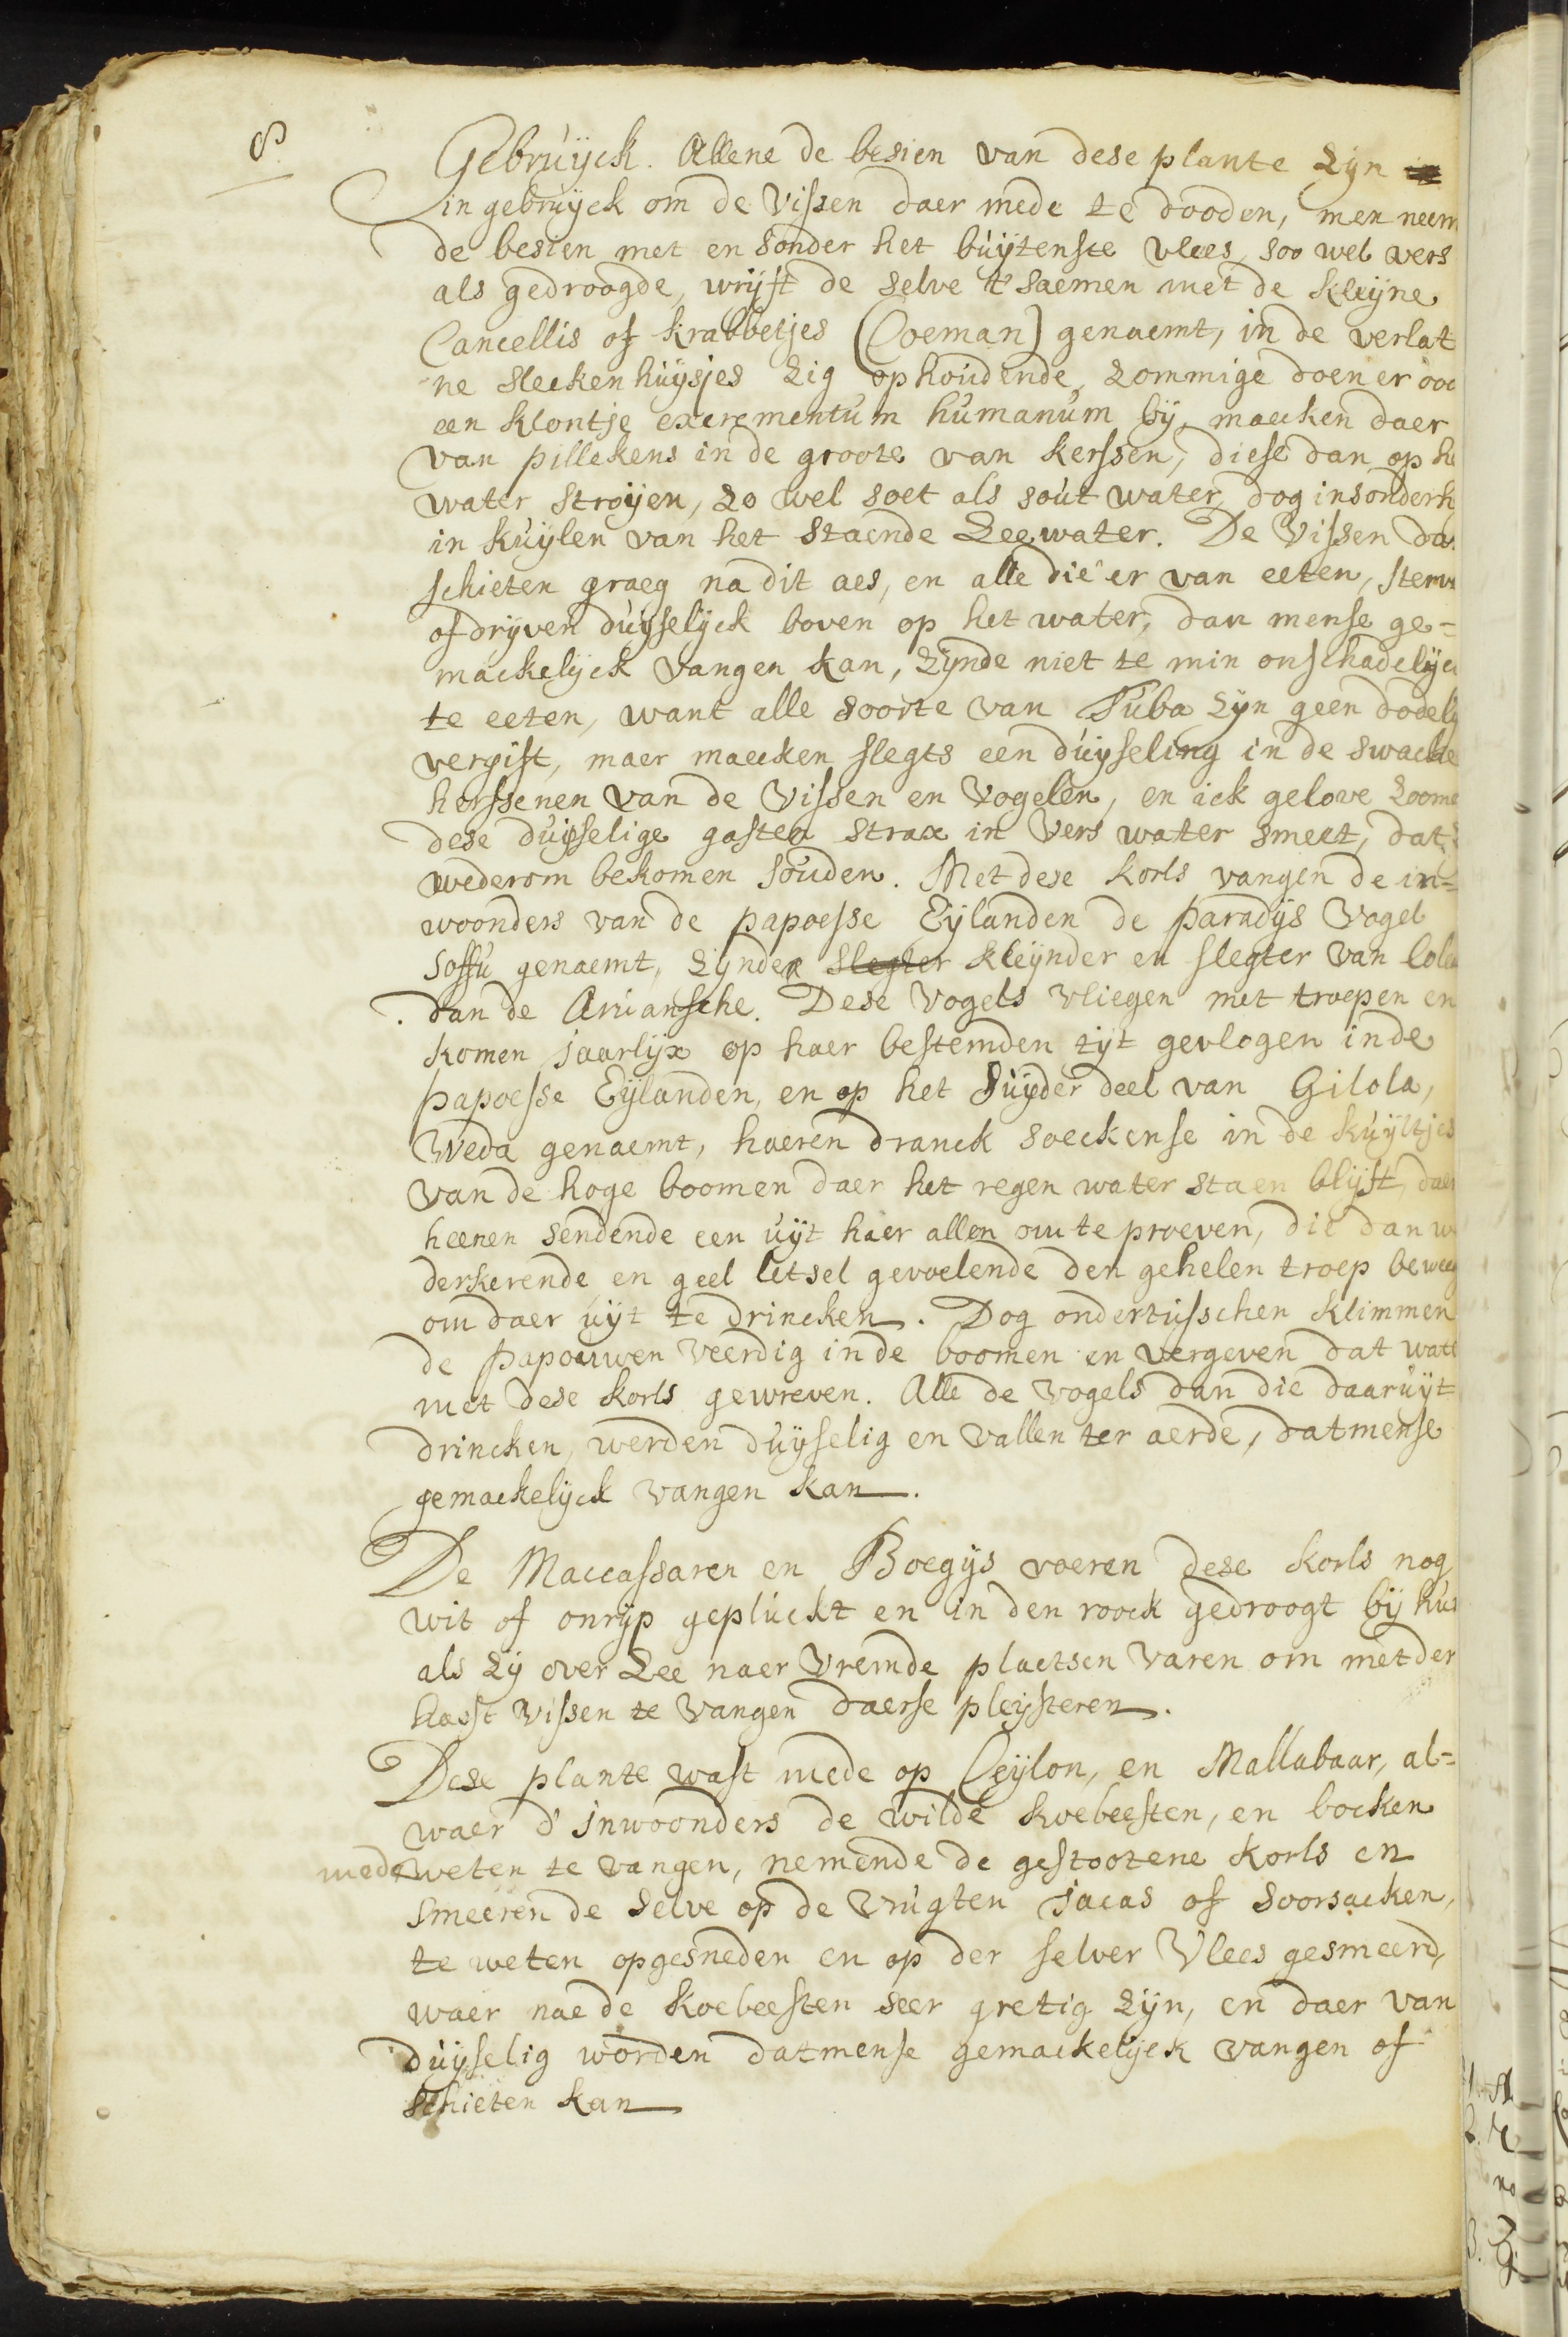 8
Gebruÿck. Allene de besien van dese plante zÿn
in gebruÿck om de vissen daer mede te dooden, men neem
de besien met en sonder het buÿtenste vlees, soo wel vers
als gedroogde, wrÿft de selve t'saemen met de kleÿne
Cancellis of krabbetjes (Coeman) genaemt, in de verlat
ne sleckenhuÿsjes zig ophoudende, zommige doen er ooc
een klontje excrementum humanum bÿ, maecken daer
van pillekens in de groote van kerssen, diese dan op he
water stroÿen, zo wel soet als sout water, dog insonderh
in kuÿlen van het staende Zeewater. De Vissen da
schieten graeg na dit aes, en alle die er van eeten, sterv
of drÿven duÿselÿck boven op het water, dan mense ge=
mackelÿck vangen kan, zÿnde niet te min onschadelÿc
te eeten, want alle soorte van Tuba zÿn geen dodelÿ
vergift, maer maecken slegts een duÿseling in de swacke
herssenen van de Vissen en Vogelen, en ick gelove zoome
dese duÿselige gasten strax in vers water smeet, dat
wederom bekomen souden. Met dese korls vangen de in=
woonders van de papoesse Eÿlanden de paradÿs Vogel
Soffu genaemt, zÿnde slegter kleÿnder en slegter van
dan de Aruansche. Dese Vogels vliegen met troepen en
komen jaarlÿx op haer bestemden tÿt gevlogen inde
papoesse Eÿlanden, en op het suÿder deel van Gilola,
Weda genaemt, haeren dranck soeckense in de kuÿltjes
van de hoge boomen daer het regen water staen blÿft, daer
heenen sendende een uÿt haer allen om te proeven, die dan w
derkerende en geel letsel gevoelende den gehelen troep beweeg
om daer uÿt te drincken. Dog ondertusschen klimmen
de papouwen veerdig in de boomen en vergeven dat wate
met dese korls gewreven. Alle de vogels dan die daaruÿt
drincken, werden duÿselig en vallen ter aerde, datmense
gemackelÿck vangen kan.
De Maccassaren en Boegÿs voeren dese korls nog
wit of onrÿp gepluckt en in den roock gedroogt bÿ
als zÿ over Zee naer vremde plaetsen varen om met der
hast vissen te vangen daerse pleÿsteren.
Dese plante wast mede op Ceÿlon, en Mallabaar, al=
waer d'inwoonders de wilde koebeesten, en bocken
mede weten te vangen, nemende de gestootene korls en
smeeren de selve op de vrugten jacas of soorsacken,
te weten opgesneden en op der selver vlees gesmeerd,
waer nae de koebeesten seer gretig zÿn, en daer van
duÿselig worden datmense gemackelÿck vangen of
schieten kan